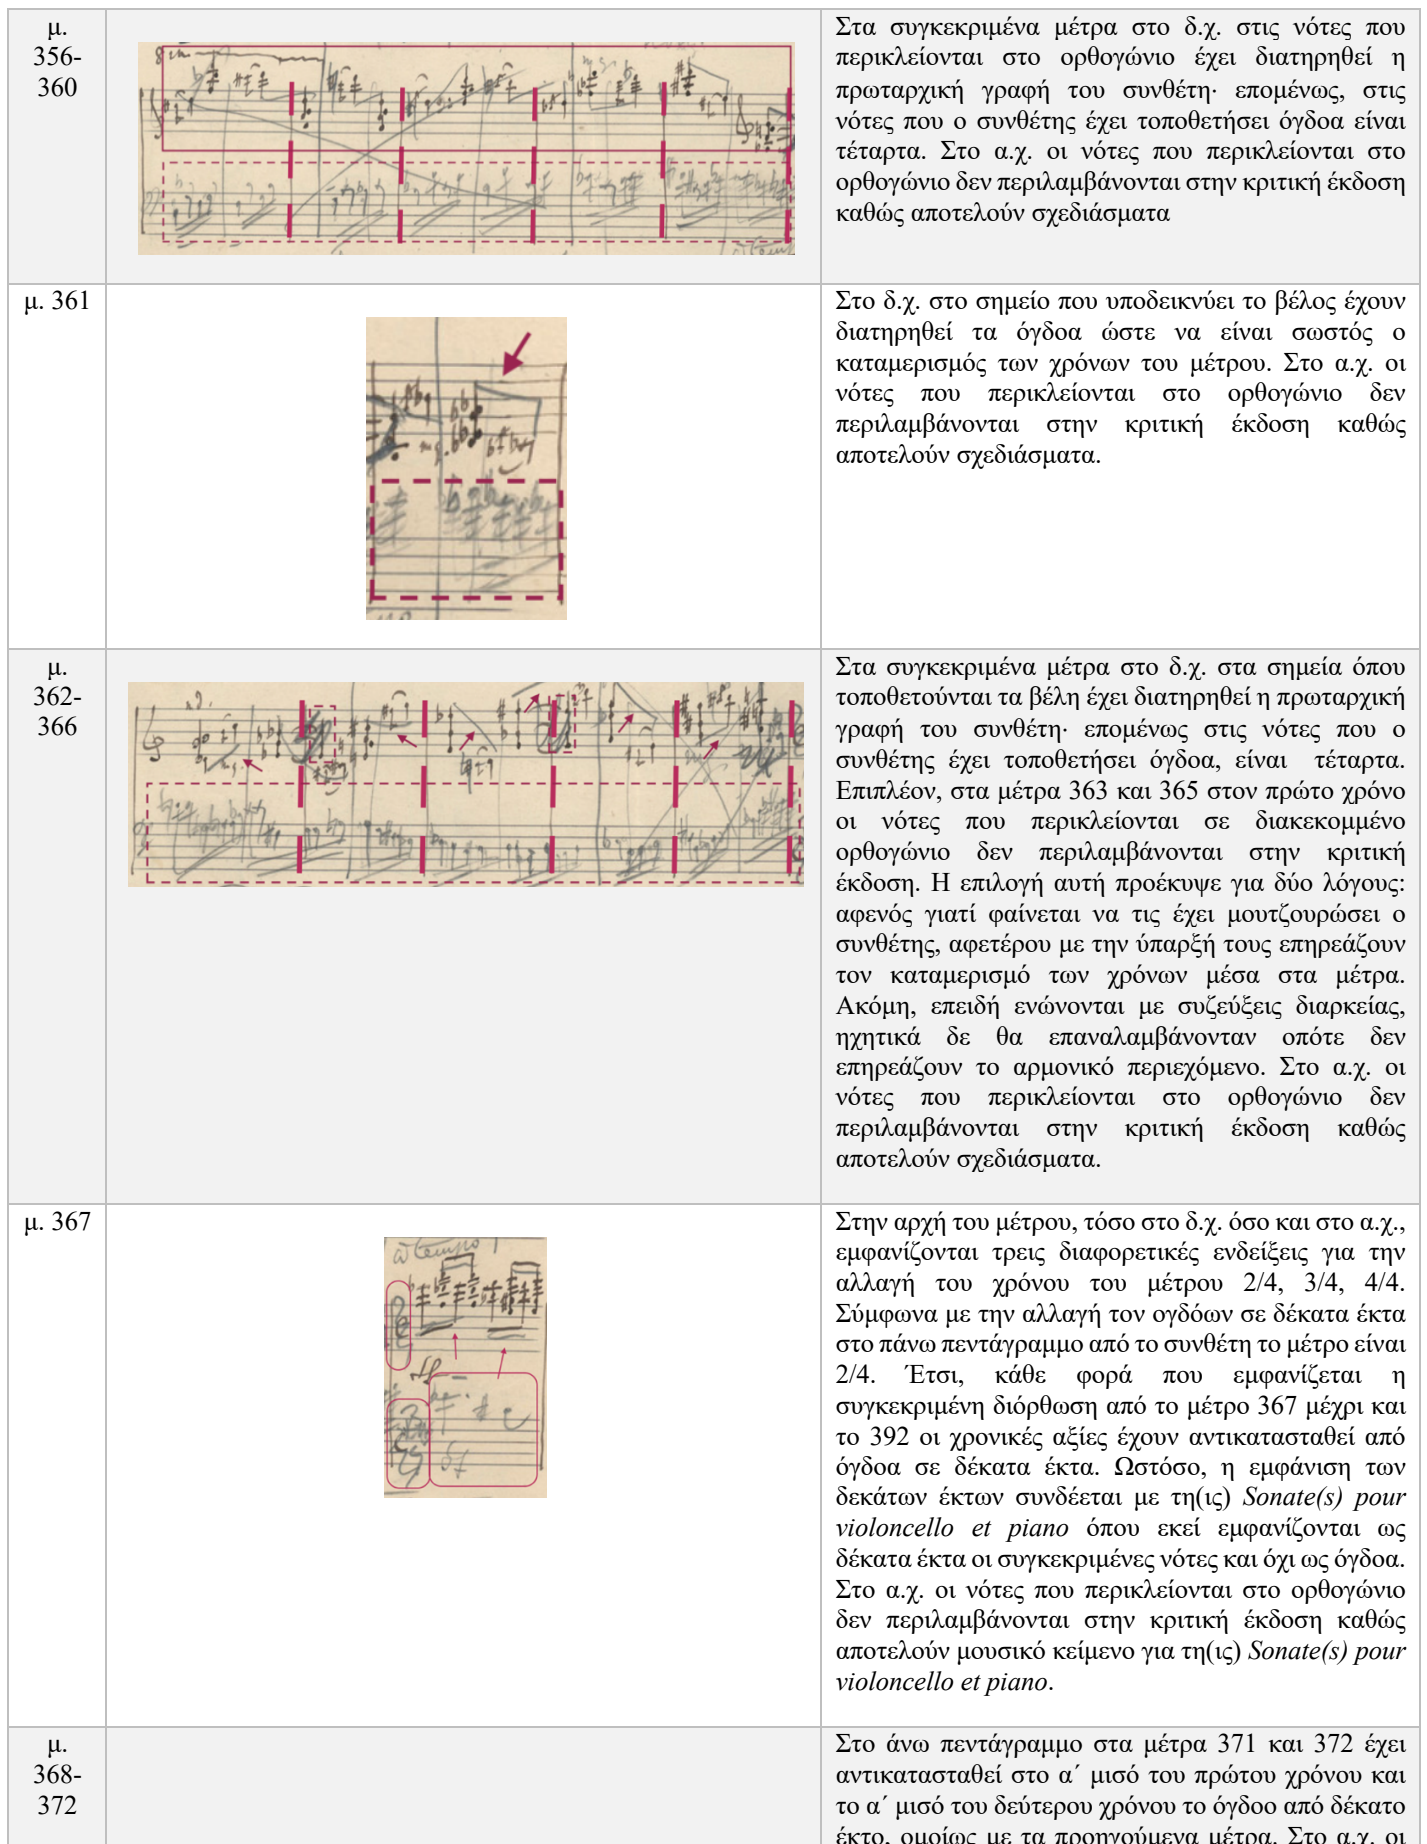 μ.
356-
360
Στα συγκεκριμένα μέτρα στο δ.χ. στις νότες που
περικλείονται στο ορθογώνιο έχει διατηρηθεί η
πρωταρχική γραφή του συνθέτη· επομένως, στις
νότες που ο συνθέτης έχει τοποθετήσει όγδοα είναι
τέταρτα. Στο α.χ. οι νότες που περικλείονται στο
ορθογώνιο δεν περιλαμβάνονται στην κριτική έκδοση
καθώς αποτελούν σχεδιάσματα
μ. 361
Στο δ.χ. στο σημείο που υποδεικνύει το βέλος έχουν
διατηρηθεί τα όγδοα ώστε να είναι σωστός ο
καταμερισμός των χρόνων του μέτρου. Στο α.χ. οι
νότες που περικλείονται στο ορθογώνιο δεν
περιλαμβάνονται στην κριτική έκδοση καθώς
αποτελούν σχεδιάσματα.
μ.
362-
366
Στα συγκεκριμένα μέτρα στο δ.χ. στα σημεία όπου
τοποθετούνται τα βέλη έχει διατηρηθεί η πρωταρχική
γραφή του συνθέτη· επομένως στις νότες που ο
συνθέτης έχει τοποθετήσει όγδοα, είναι τέταρτα.
Επιπλέον, στα μέτρα 363 και 365 στον πρώτο χρόνο
οι νότες που περικλείονται σε διακεκομμένο
ορθογώνιο δεν περιλαμβάνονται στην κριτική
έκδοση. Η επιλογή αυτή προέκυψε για δύο λόγους:
αφενός γιατί φαίνεται να τις έχει μουτζουρώσει ο
συνθέτης, αφετέρου με την ύπαρξή τους επηρεάζουν
τον καταμερισμό των χρόνων μέσα στα μέτρα.
Ακόμη, επειδή ενώνονται με συζεύξεις διαρκείας,
ηχητικά δε θα επαναλαμβάνονταν οπότε δεν
επηρεάζουν το αρμονικό περιεχόμενο. Στο α.χ. οι
νότες που περικλείονται στο ορθογώνιο δεν
περιλαμβάνονται στην κριτική έκδοση καθώς
αποτελούν σχεδιάσματα.
μ. 367
a tempo
Στην αρχή του μέτρου, τόσο στο δ.χ. όσο και στο α.χ.,
εμφανίζονται τρεις διαφορετικές ενδείξεις για την
αλλαγή του χρόνου του μέτρου 2/4, 3/4, 4/4.
Σύμφωνα με την αλλαγή τον ογδόων σε δέκατα έκτα
στο πάνω πεντάγραμμο από το συνθέτη το μέτρο είναι
2/4. Έτσι, κάθε φορά που εμφανίζεται η
συγκεκριμένη διόρθωση από το μέτρο 367 μέχρι και
το 392 οι χρονικές αξίες έχουν αντικατασταθεί από
όγδοα σε δέκατα έκτα. Ωστόσο, η εμφάνιση των
δεκάτων έκτων συνδέεται με τη(ις) Sonate(s) pour
violoncello et piano όπου εκεί εμφανίζονται ως
δέκατα έκτα οι συγκεκριμένες νότες και όχι ως όγδοα.
Στο α.χ. οι νότες που περικλείονται στο ορθογώνιο
δεν περιλαμβάνονται στην κριτική έκδοση καθώς
αποτελούν μουσικό κείμενο για τη(ις) Sonate(s) pour
violoncello et piano.
μ.
368-
372
Στο άνω πεντάγραμμο στα μέτρα 371 και 372 έχει
αντικατασταθεί στο α΄ μισό του πρώτου χρόνου και
το α΄ μισό του δεύτερου χρόνου το όγδοο από δέκατο
έκτο, ομοίως με τα προηγούμενα μέτρα. Στο α.χ. οι